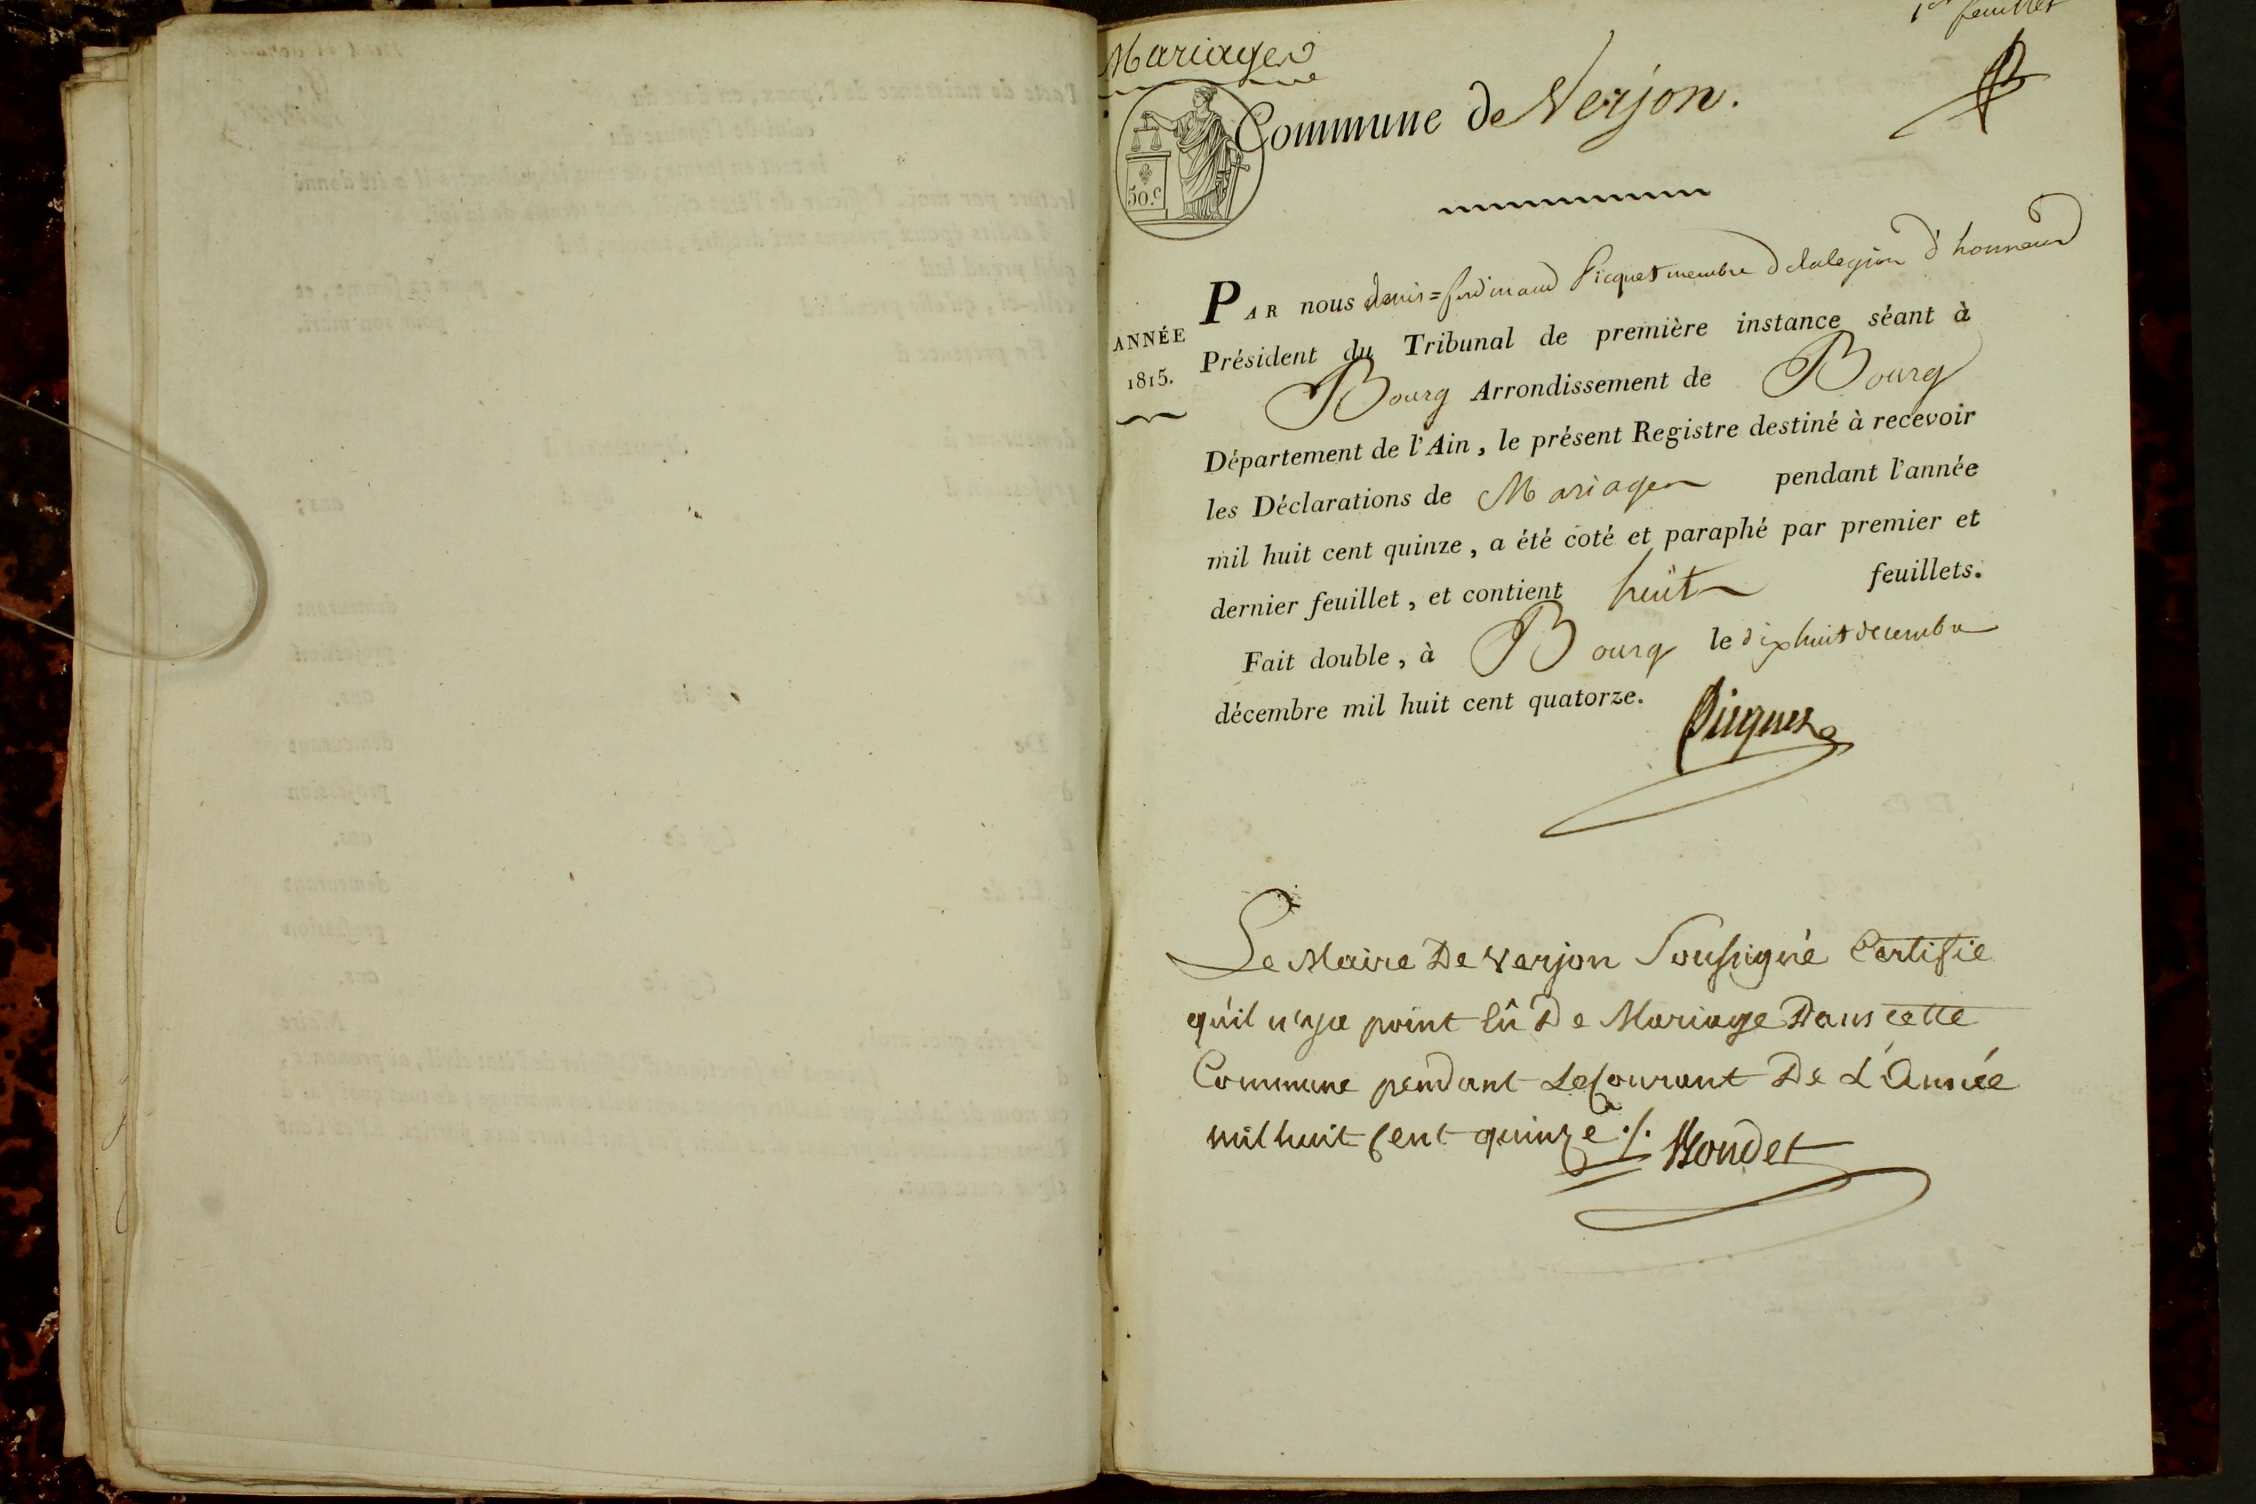 1er feuillet
Mariages
Commune de Verjon.
50.c
ANNÉE
1815.
PAR nous denis=ferdinand Picquet membre de la legion d'honneur
Président du Tribunal de première instance séant à
Bourg Arrondissement de Bourg
Département de l'Ain, le présent Registre destiné à recevoir
les Déclarations de Mariages pendant l'année
mil huit cent quinze, a été coté et paraphé par premier et
dernier feuillet, et contient huit feuillets.
Fait double, à Bourg le dix huit decembre
décembre mil huit cent quatorze.
Picquet
Le Maire De Verjon Soussigné Certifie
qu'il n'ya point Eû De Mariage Dans cette
Commune pendant Le Courant De L'Année
mil huit Cent quinze ./.